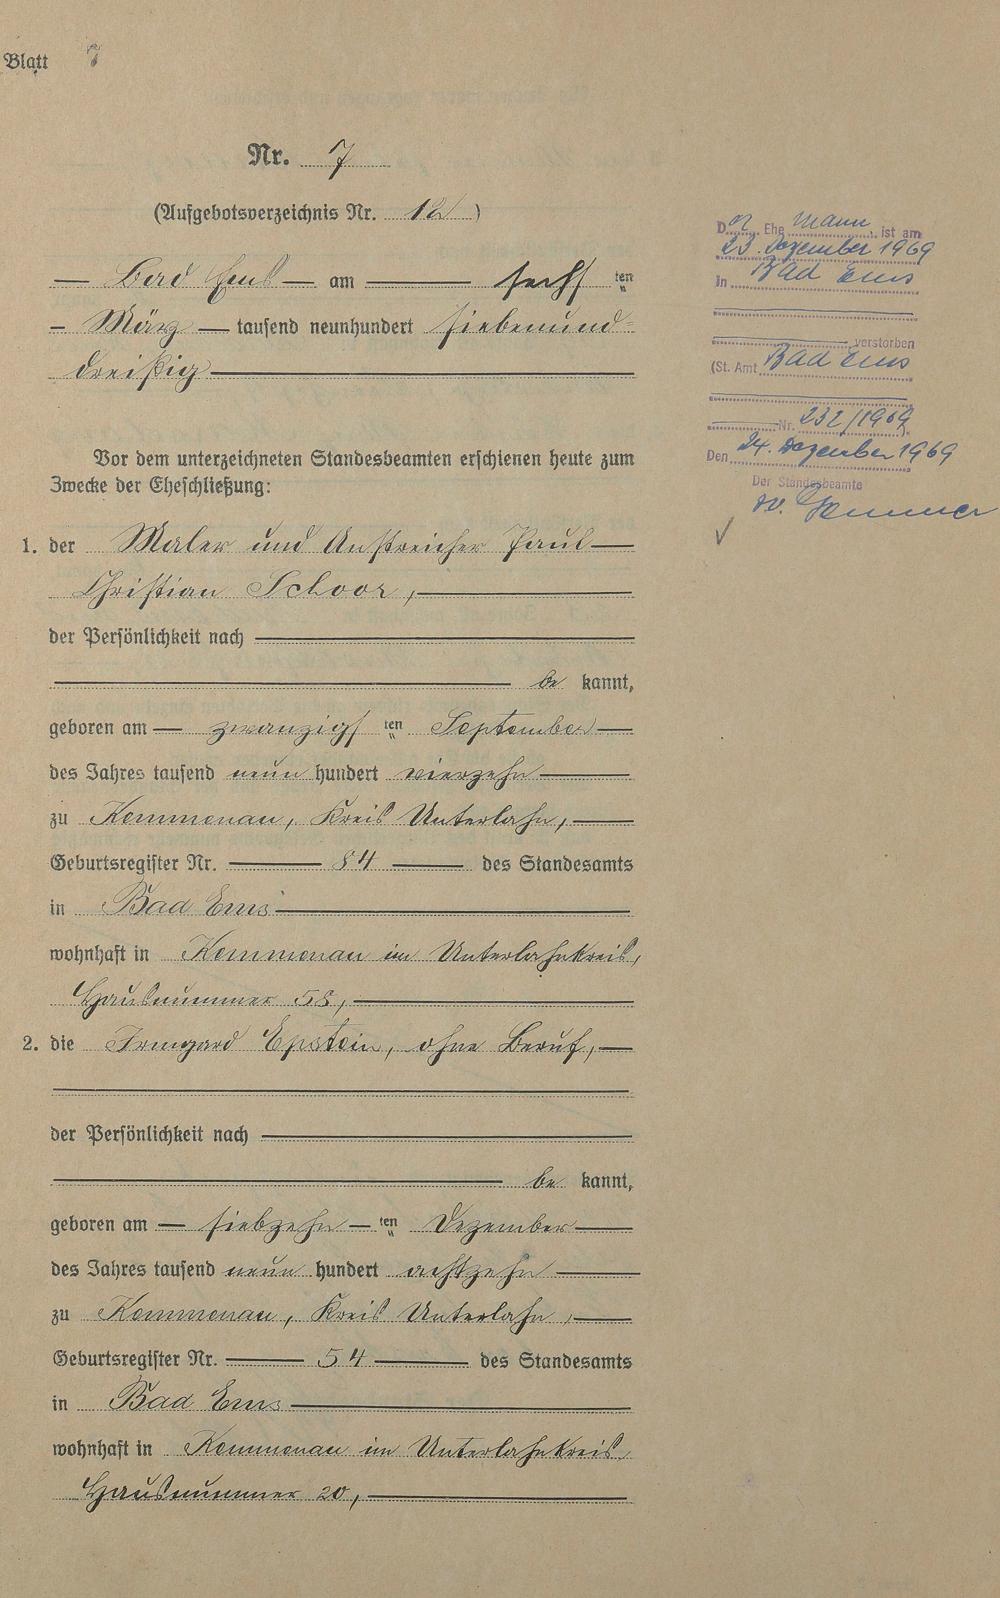 Blatt 7
Nr. 7
(Aufgebotsverzeichnis Nr. 12)
Bad Ems am sechsten
März tausend neunhundert siebenund-
dreißig
Vor dem unterzeichneten Standesbeamten erschienen heute zum
Zwecke der Eheschließung:
1. der Maler und Anstreicher Paul
Christian Schoor,
der Persönlichkeit nach
be kannt,
geboren am zwanzigsten September
des Jahres tausend neun hundert vierzehn
zu Kemmenau, Kreis Unterlahn,
Geburtsregister Nr. 84 des Standesamts
in Bad Ems
wohnhaft in Kemmenau im Unterlahnkreis,
Hausnummer 58,
2. die Irmgard Epstein, ohne Beruf,
der Persönlichkeit nach
be kannt,
geboren am siebzehnten Dezember
des Jahres tausend neun hundert achtzehn
zu Kemmenau, Kreis Unterlahn,
Geburtsregister Nr. 54 des Standesamts
in Bad Ems
wohnhaft in Kemmenau im Unterlahnkreis,
Hausnummer 20,
Der Ehemann ist am
23. Dezember 1969
in Bad Ems
verstorben
(St. Amt Bad Ems
Nr. 232/1969
Den 24. Dezember 1969
Der Standesbeamte